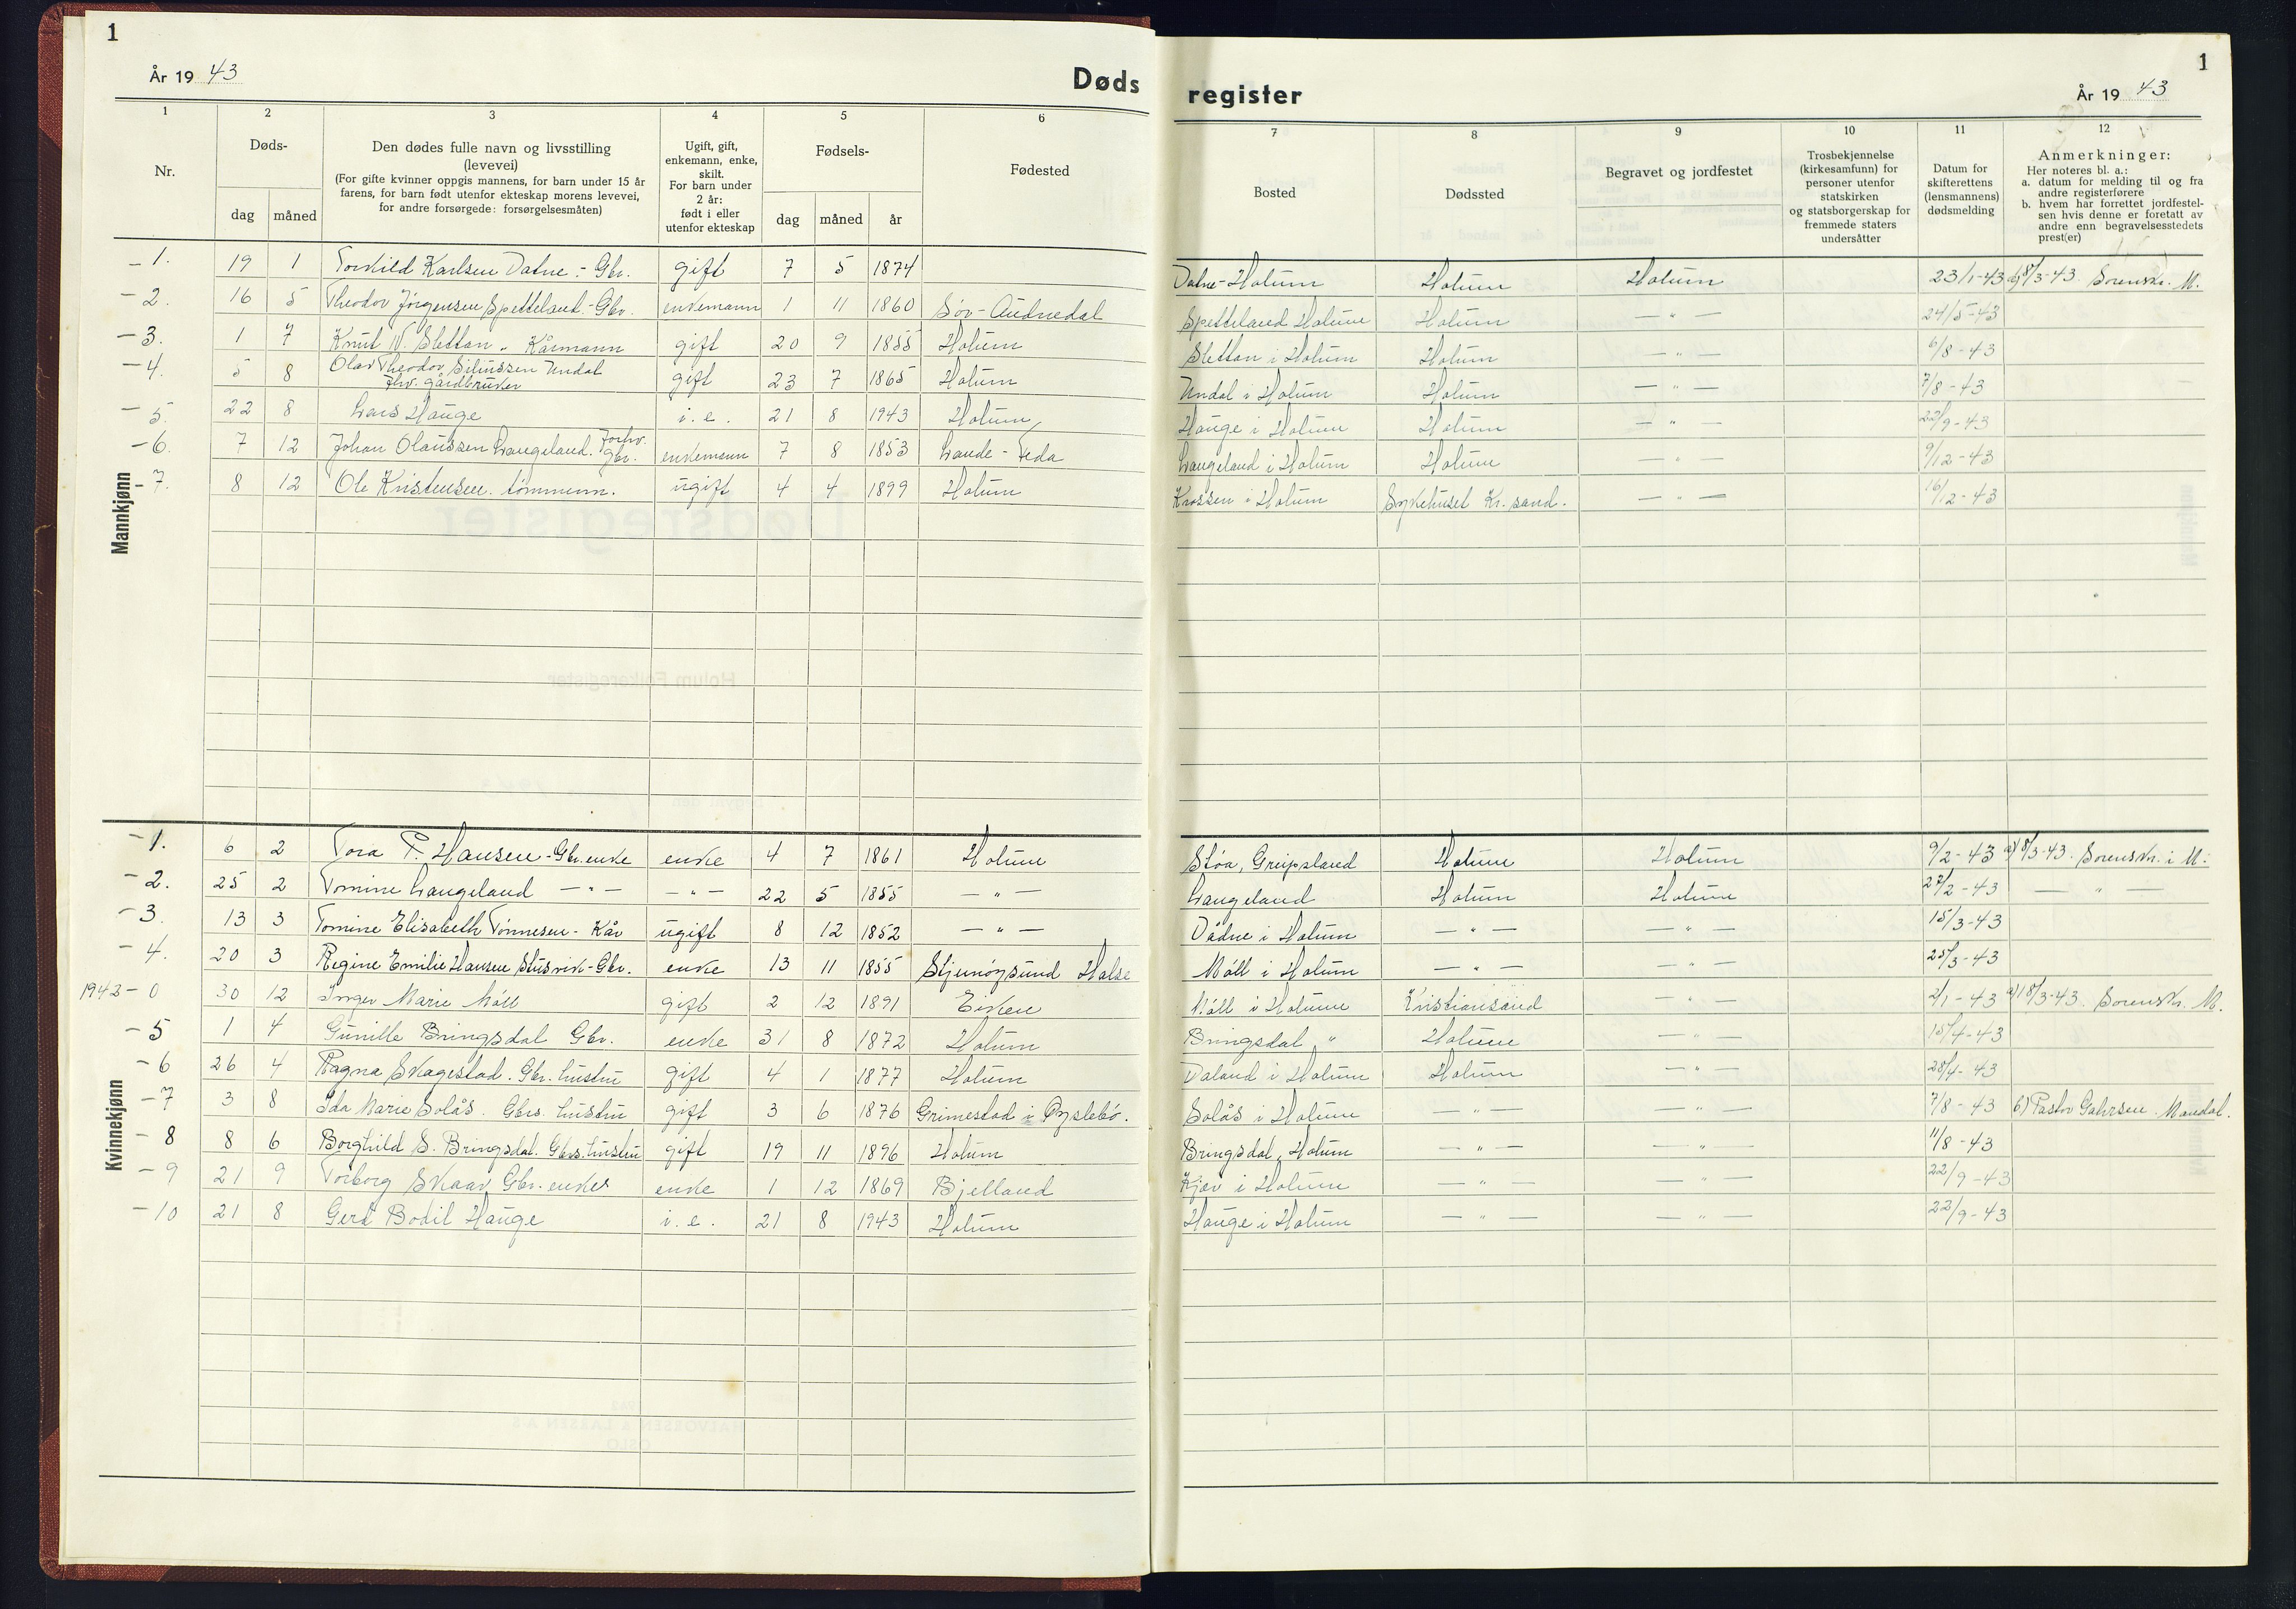 1
År 1943
Døds
1 2 3 4 5 6
Nr.
Døds-
dag måned
Den dødes fulle navn og livsstilling
(levevei)
(For gifte kvinner oppgis mannens, for barn under 15 år
farens, for barn født utenfor ekteskap morens levevei,
for andre forsørgede: forsørgelsesmåten)
Ugift, gift,
enkemann, enke,
skilt.
For barn under
2 år:
født i eller
utenfor ekteskap
Fødsels-
dag måned år
Fødested
register
1
År 1943
7 8 9 10 11 12
Bosted
Dødssted
Begravet og jordfestet
Trosbekjennelse
(kirkesamfunn) for
personer utenfor
statskirken
og statsborgerskap for
fremmede staters
undersåtter
Datum for
skifterettens
(lensmannens)
dødsmelding
Anmerkninger:
Her noteres bl. a.:
a. datum for melding til og fra
andre registerførere
b. hvem har forrettet jordfestel-
sen hvis denne er foretatt av
andre enn begravelsesstedets
prest(er)
Mannkjønn
- 1. 19 1 Torkild Karlsen Datne - Gbr. gift 7 5 1874 Datne - Holum Holum Holum 23/1-43 a) 8/3-43. Sorenskr. M.
- 2. 16 5 Theodor Jørgensen Spetteland - Gbr. enkemann 1 11 1860 Sør-Audnedal Spetteland Holum Holum — " — 24/5-43
- 3. 1 7 Knut N. Sletten - Kårmann gift 20 9 1855 Holum Sletten i Holum Holum — " — 6/8-43
- 4. 5 8 Olav Theodor Siliussen Undal
fhv. gårdbruker gift 23 7 1865 Holum Undal i Holum Holum — " — 7/8-43
- 5. 22 8 Lars Hauge i. e. 21 8 1943 Holum Hauge i Holum Holum — " — 22/9-43
- 6. 7 12 Johan Olaussen Langeland. Forhv. Gbr. enkemann 7 8 1853 Lande - Feda Langeland i Holum Holum — " — 9/12-43
- 7. 8 12 Ole Kristensen. tømmerm. ugift 4 4 1899 Holum Krossen i Holum Sykehuset Kr.sand. — " — 16/12-43
Kvinnekjønn
- 1. 6 2 Tora P. Hansen - Gbr.enke enke 4 7 1861 Holum Støa, Greipsland Holum Holum 9/2-43 a) 8/3-43. Sorenskr. i M.
- 2. 25 2 Tomine Langeland — " — — " — 22 5 1855 — " — Langeland Holum Holum 27/2-43 — " —
- 3. 13 3 Tomine Elisabeth Tønnesen - Kår ugift 8 12 1852 — " — Dådne i Holum — " — — " — 15/3-43
- 4. 20 3 Regine Emilie Hansen Stusvik - Gbr. enke 13 11 1855 Stjernøysund Halse Møll i Holum — " — — " — 25/3-43
1942 - 0 30 12 Inger Marie Møll gift 2 12 1891 Eiken Møll i Holum Kristiansand — " — 2/1-43 a) 18/3-43. Sorenskr. M.
- 5 1 4 Gunille Bringsdal Gbr. enke 31 8 1872 Holum Bringsdal " Holum — " — 15/4-43
- 6 26 4 Ragna Skagestad. Gbr. hustru gift 4 1 1877 Holum Daland i Holum Holum — " — 28/4-43
- 7 3 8 Ida Marie Solås. Gbrs. hustru gift 3 6 1876 Grimestad i Øyslebø. Solås i Holum — " — — " — 7/8-43 b) Pastor Gahrsen. Mandal.
- 8 8 6 Borghild S. Bringsdal. Gbrs. hustru gift 19 11 1896 Holum Bringsdal, Holum — " — — " — 11/8-43
- 9 21 9 Torborg Skaar Gbr. enke enke 1 12 1869 Bjelland Kjær i Holum — " — — " — 22/9-43
- 10 21 8 Gerd Bodil Hauge i. e. 21 8 1943 Holum Hauge i Holum — " — — " — 22/9-43